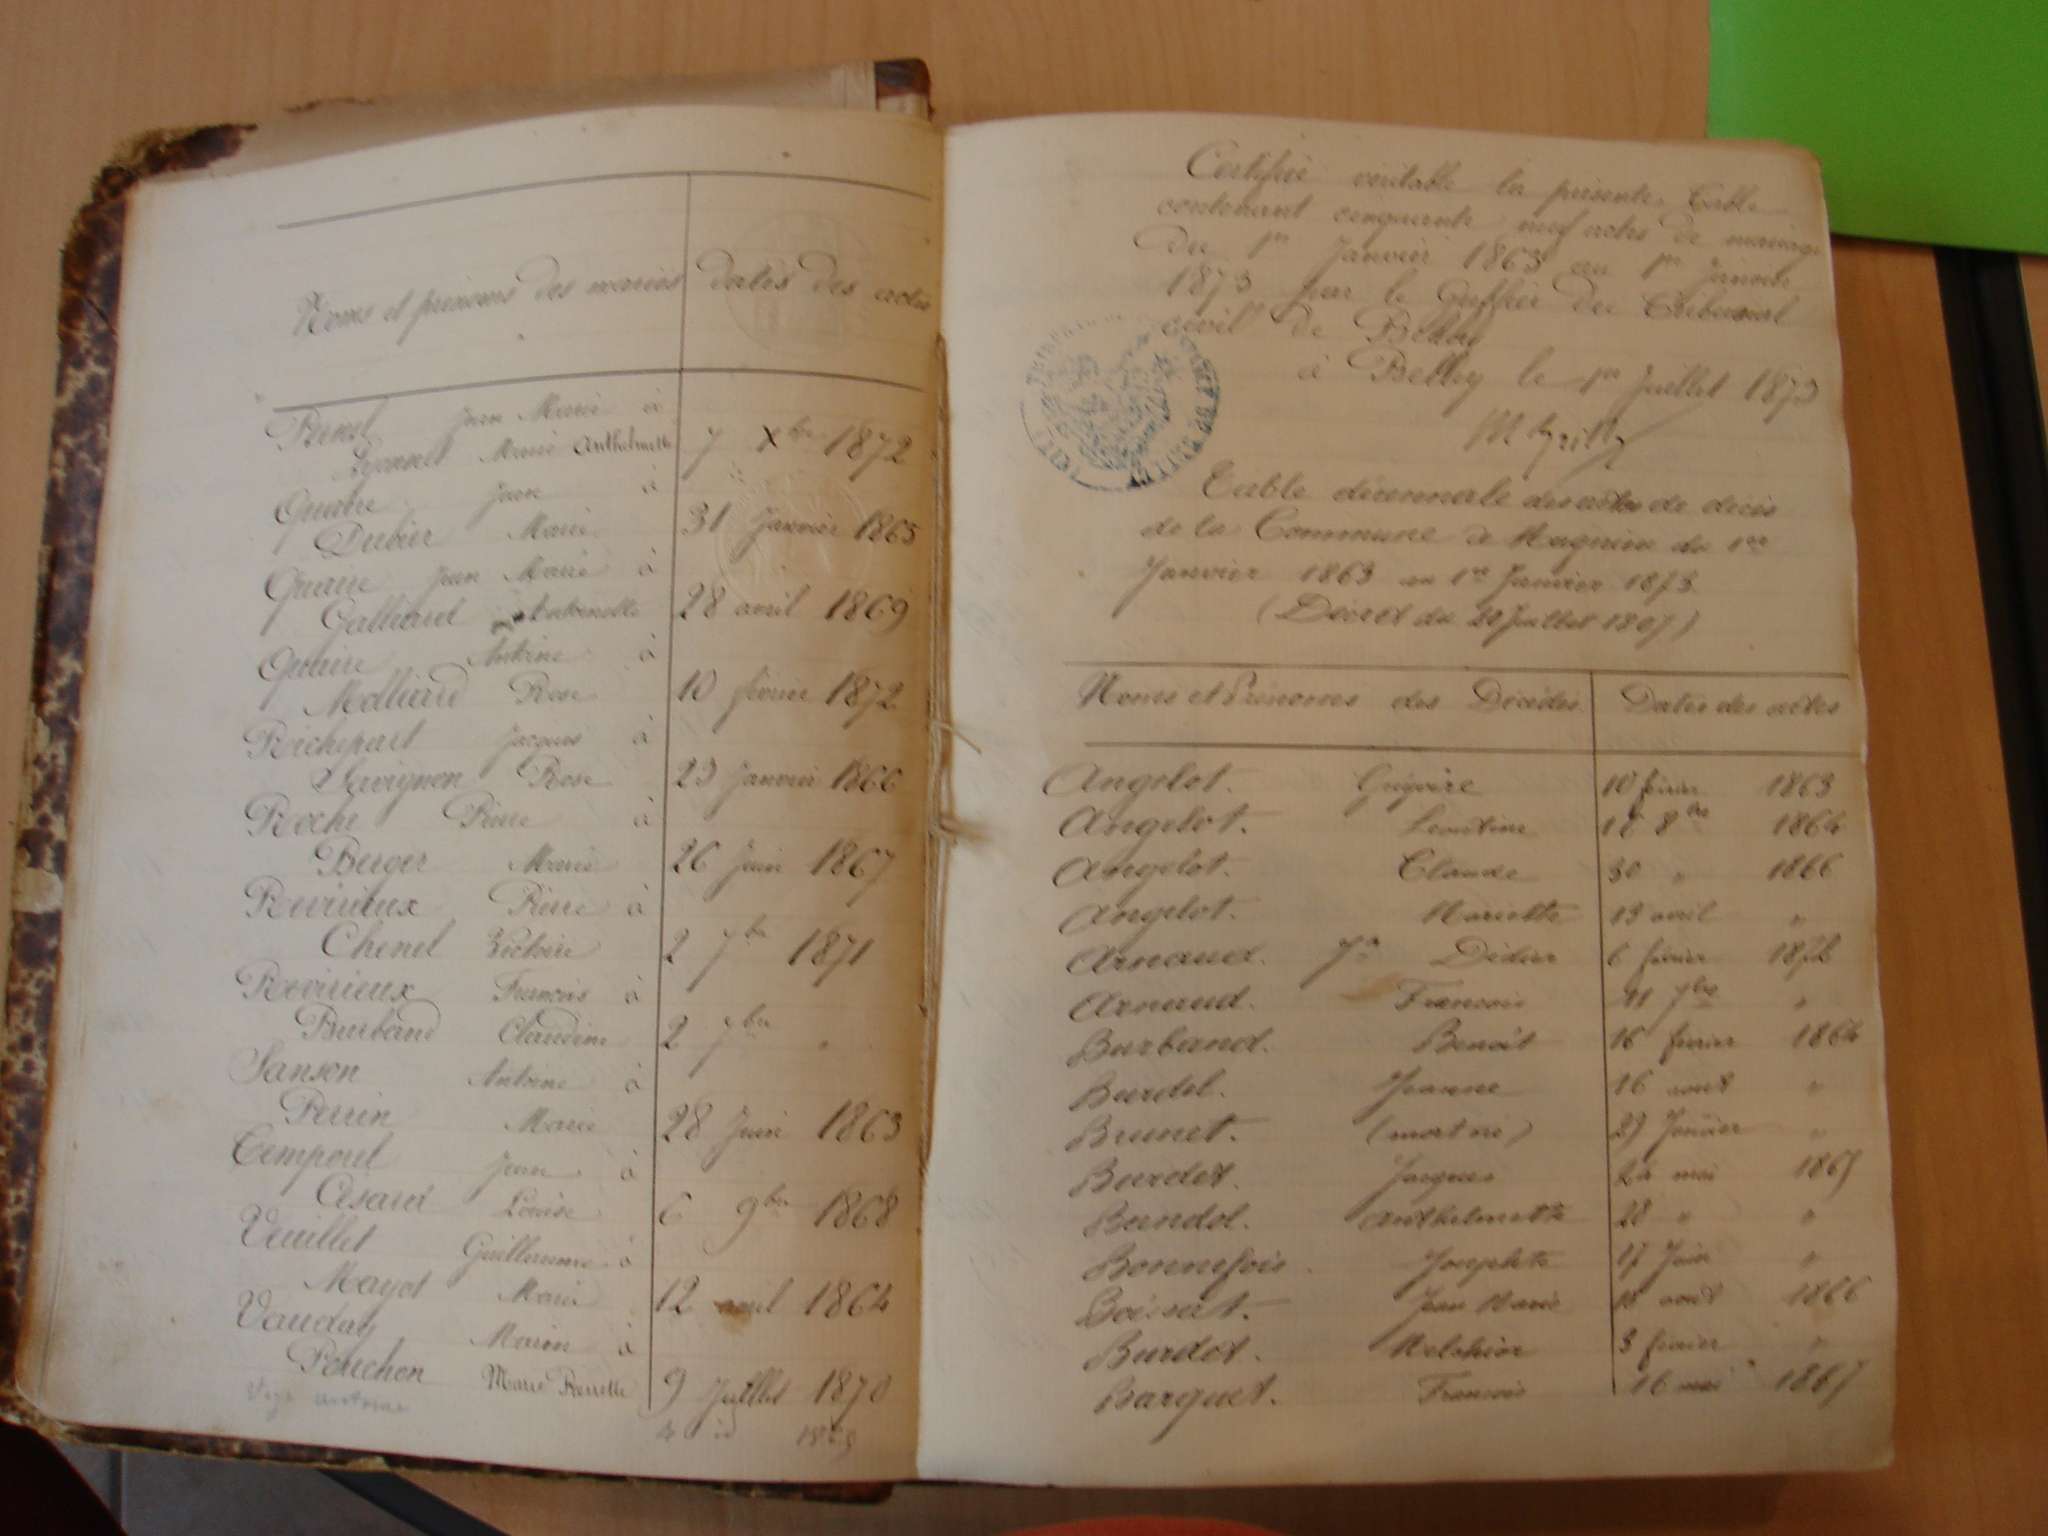 Noms et prénoms des mariés dates des actes
Jean Marie à
Marie Anthelmette 7 Xbre 1872
Quaire Jean à
Dubier Marie 31 Janvier 1865
Quaire Jean Marie à
Galliand Antoinette 28 avril 1869
Quaire Antoine à
Molliard Rose 10 février 1872
Richepart Jacques à
Rose 23 Janvier 1866
Roche Pierre à
Berger Marie 26 Juin 1867
Revirieux Pierre à
Chenel Victoire 2 7bre 1871
Revirieux François à
Burband Claudine 2 7bre "
Sanson Antoine à
Perrin Marie 28 Juin 1863
Temporel Jean à
Cesard Louise 6 9bre 1868
Veuillet Guillaume à
Mayot Marie 12 avril 1864
Vauday Marin à
Ponchon Marie Pierrette 9 Juillet 1870
antoine 4 id
Certifié véritable la présente Table
contenant cinquante neuf actes de mariage
du 1er Janvier 1863 au 1er Janvier
1873 par le Greffier du Tribunal
civil de Belley
à Belley le 1er Juillet 1873
Table décennale des actes de décès
de la Commune de Magnieu du 1er
Janvier 1863 au 1er Janvier 1873.
(Décret du 20 Juillet 1807)
Noms et Prénoms des Décédés Dates des actes
Angelot. Grégoire 10 février 1863
Angelot. Léontine 8bre 1864
Angelot. Claude 30 " 1866
Angelot. Mariette 13 avril "
Arnaud. Jn Didier 6 février 1872
Arnaud. François 11 7bre "
Burband. Benoit 16 février 1864
Burdel. Jeanne 16 aout "
Brunet. (mort né) 27 Janvier "
Burdet. Jacques mai 1865
Bandol. Anthelmette 28 " "
Bonnefois. Josephte 17 Juin "
Boissat. Jean Marie aout 1866
Burdet. Melchior 3 février "
Barquet. François 16 mai 1867